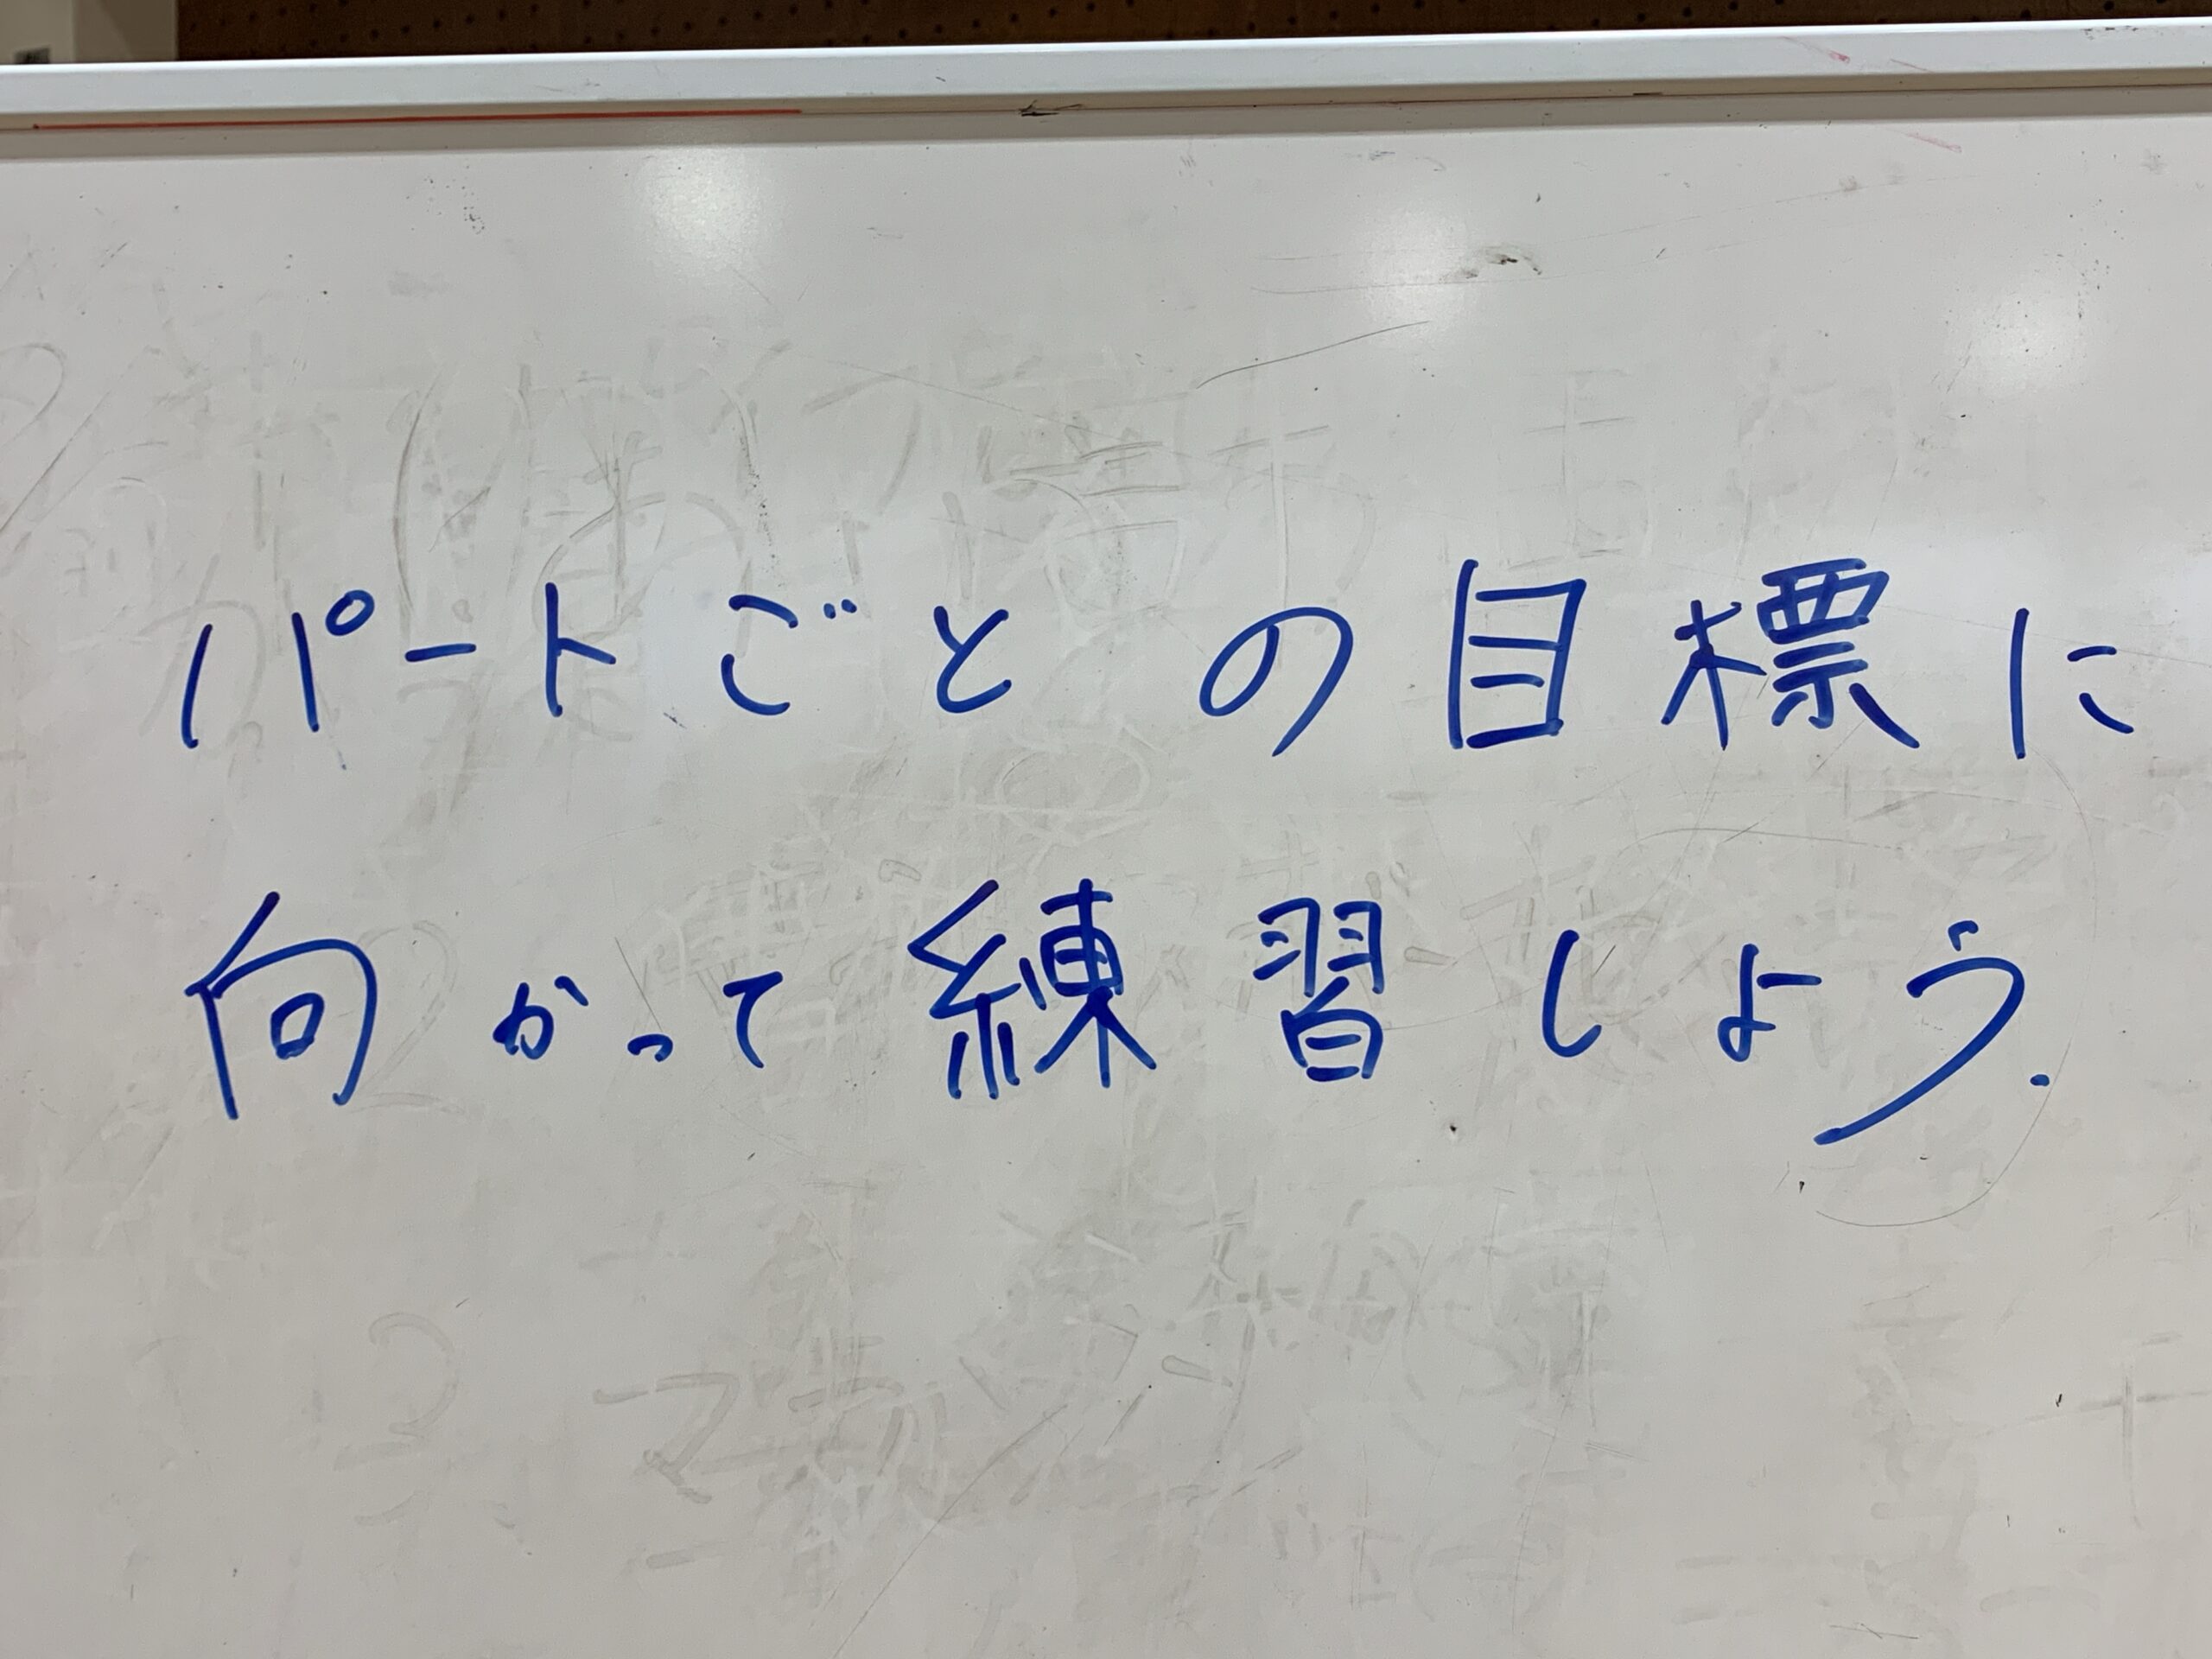 パートごとの目標に
向かって練習しよう.